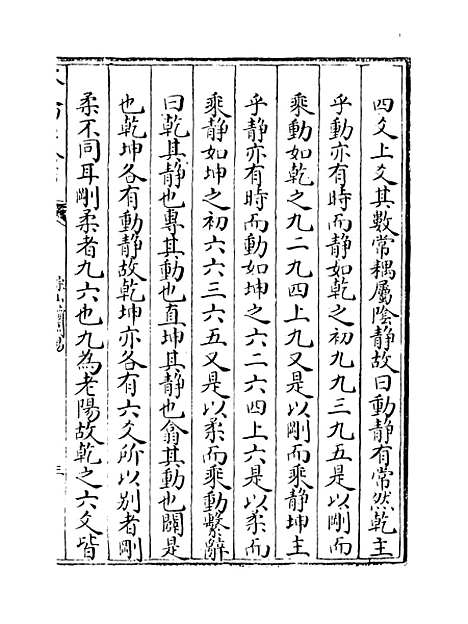 四爻上爻其數常耦屬陰静故曰動静有常然乾主
乎動亦有時而静如乾之初九九三九五是以剛而
乘動如乾之九二九四上九又是以剛而乘静坤主
乎静亦有時而動如坤之六二六四上六是以柔而
乘静如坤之初六六三六五又是以柔而乘動繫辭
曰乾其静也專其動也直坤其静也翕其動也闢是
也乾坤各有動静故乾坤亦各有六爻所以别者剛
柔不同耳剛柔者九六也九為老陽故乾之六爻皆